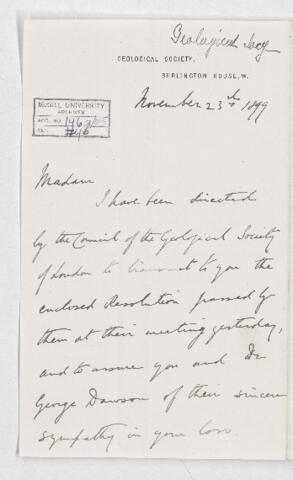 Geological Socy
GEOLOGICAL SOCIETY,
BURLINGTON HOUSE, W.
November 23rd 1899
McGILL UNIVERSITY
ARCHIVES
ACC. NO. 1463/
REF. #46
Madam
I have been directed
by the Council of the Geological Society
of London to transmit to you the
enclosed Resolution passed by
them at their meeting yesterday,
and to assure you and Dr
George Dawson of their sincere
sympathy in your loss